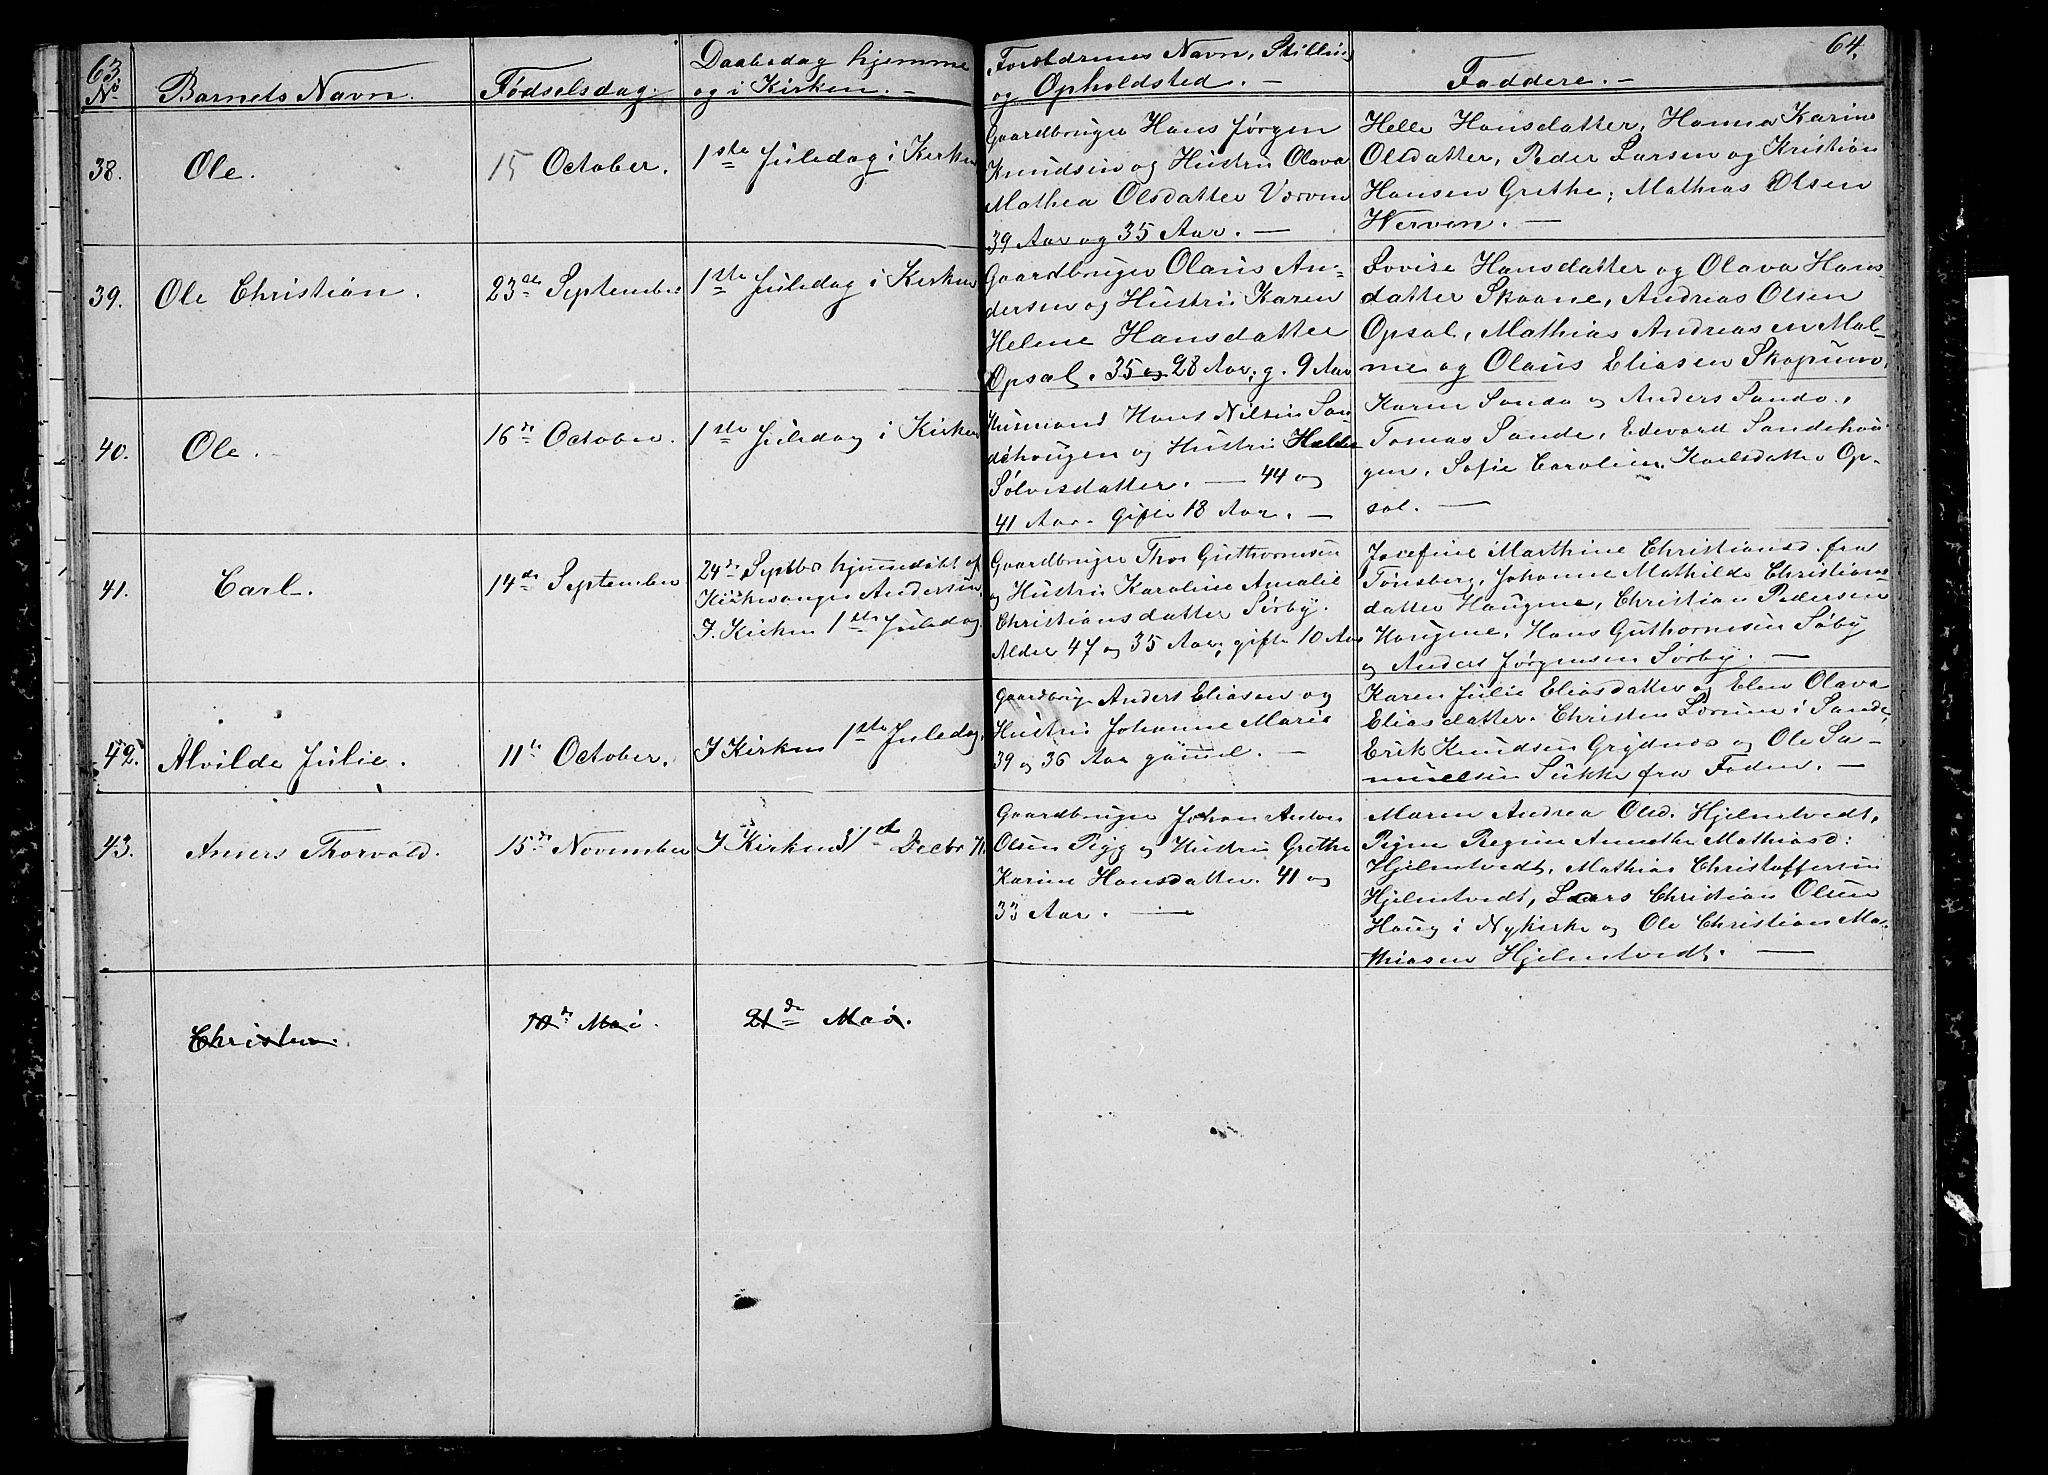 63.
64.
No
Barnets Navn.
Fødselsdag.
Daabsdag hjemme
og i Kirken. —
Forældrenes Navn, Stilling
og Opholdsted. —
Faddere. —
38.
Ole.
15 October.
1ste Juledag i Kirken
Gaardbruger Hans Jørgen
Knudsen og Hustru Olava
Mathea Olsdatter Værvn
39 Aar og 35 Aar. —
Helle Hansdatter, Hanna Karine
Olsdatter, Peder Larsen og Kristian
Hansen Grethe; Mathias Olsen
Werven. —
39.
Ole Christian.
23de September
1ste Juledag i Kirken
Gaardbruger Olaus An-
dersen og Hustru Karen
Helene Hansdatter
Opsal. 35 og 28 Aar; g. 9 Aar
Lovise Hansdatter og Olava Hans-
datter Skaane, Andreas Olsen
Opsal, Mathias Andreasen Mal-
me og Olaus Eliasen Skopum.
40.
Ole.
16de October.
1ste Juledag i Kirken
Husmand Hans Nilsen San-
dehougen og Hustru Helle
Sølvesdatter. — 44 og
41 Aar. gifte 18 Aar. —
Karen Sande og Anders Sande,
Tomas Sande, Edvard Sandehou-
gen, Sofie Caroline Karlsdatter Op-
sal. —
41.
Carl.
14de September
24de Septbr hjemmedøbt af
Kirkesanger Andersen.
I Kirken 1ste Juledag.
Gaardbruger Thor Guthormsen
og Hustru Karoline Amalie
Christiansdatter Sørby.
Alder 47 og 35 Aar; gifte 10 Aar
Josefine Marthine Christiansd. fra
Tønsberg, Johanne Mathilde Christians-
datter Haugene, Christian Pedersen
Haugene, Hans Guthormsen Søby
og Anders Jørgensen Sørby. —
42.
Alvilde Julie.
11te October.
I Kirken 1ste Juledag.
Gaardbrug. Anders Eliasen og
Hustru Johanne Marie
39 og 36 Aar gamml. —
Karen Julie Eliasdatter og Elen Olava
Eliasdatter. Christen Lorum i Sande,
Erik Knudsen Grydnes og Ole Sa-
muelsen Sukke fra Foden. —
43.
Anders Thorvald.
15de November
I Kirken 31te Decbr 71
Gaardbruger Johan Anton
Olsen Pigg og Hustru Grethe
Karine Hansdatter. 41 og
33 Aar. —
Maren Andrea Olsd. Hjelmtvedt,
Pigne Regine Annethe Mathiasd:
Hjelmtvedt, Mathias Christoffersen
Hjelmtvedt, Lars Christian Olsen
Haug i Nykirke og Ole Christian Ma-
thiasen Hjelmtvedt. —
Christen.
10de Mai.
21de Mai.